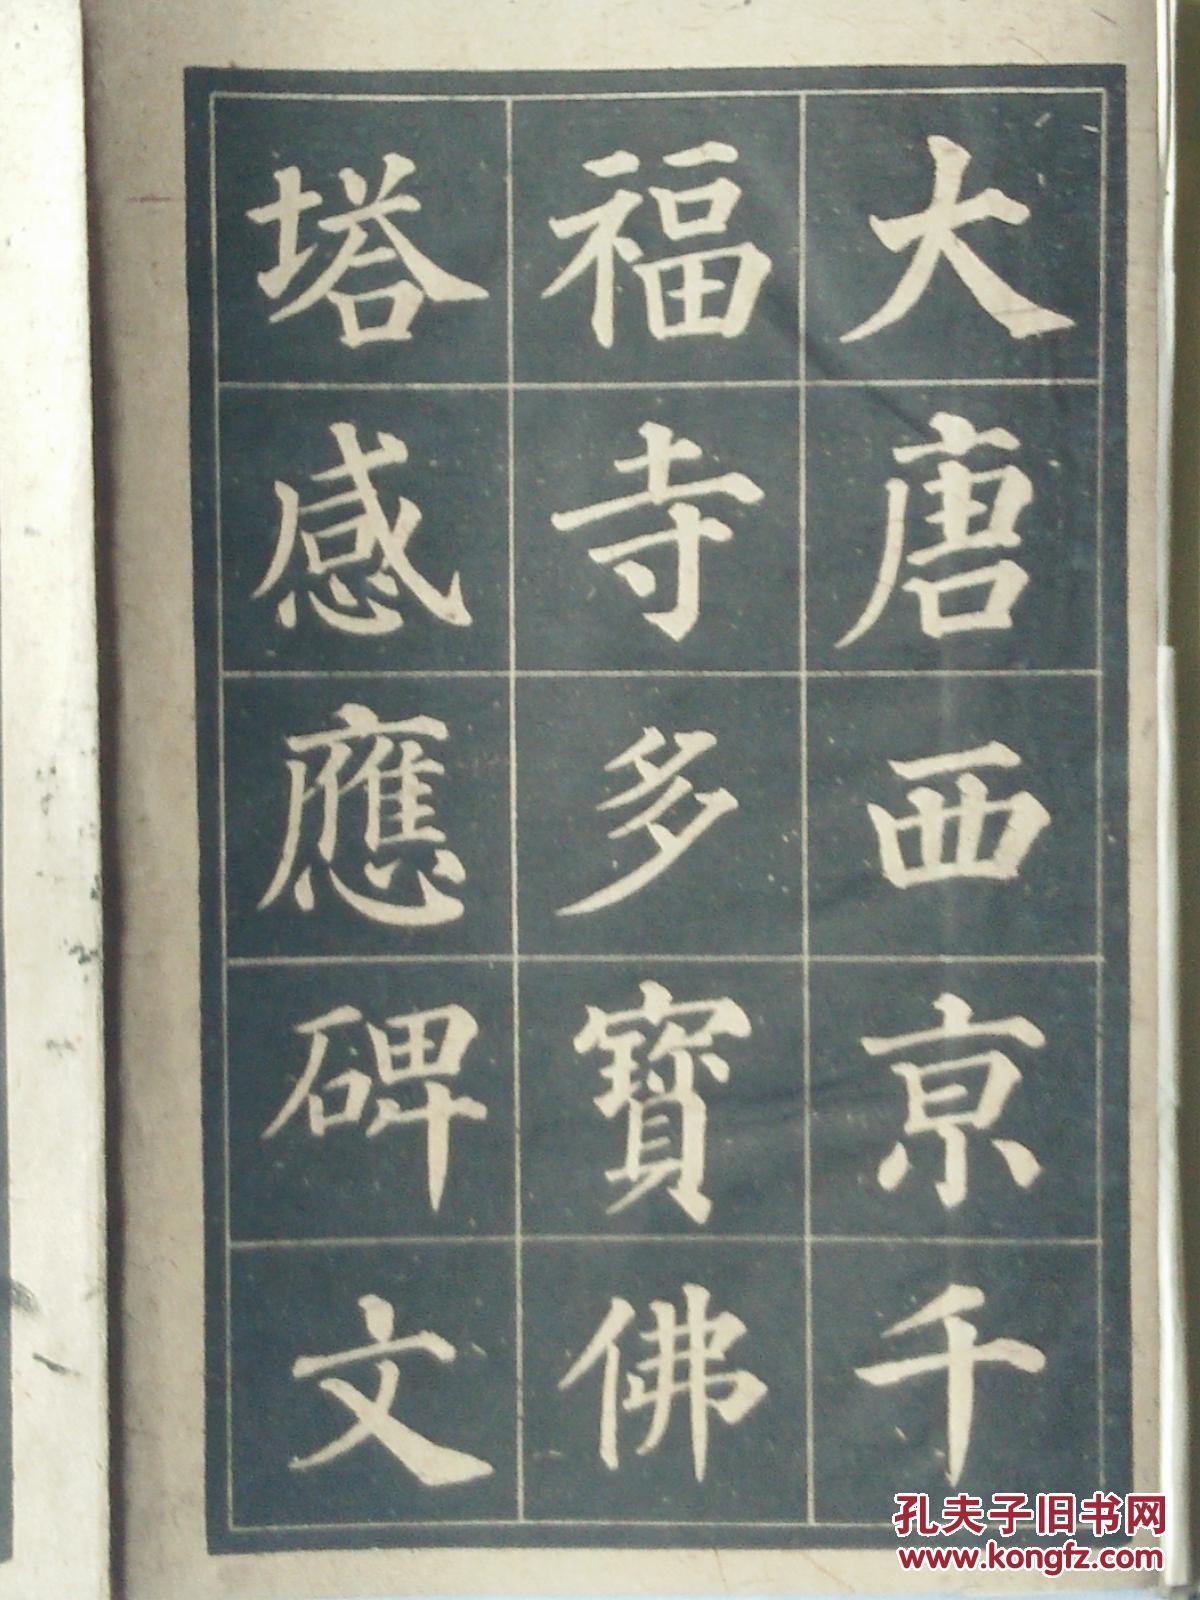 大唐西京千
福寺多寶佛
塔感應碑文
孔夫子旧书网
www.kongfz.com